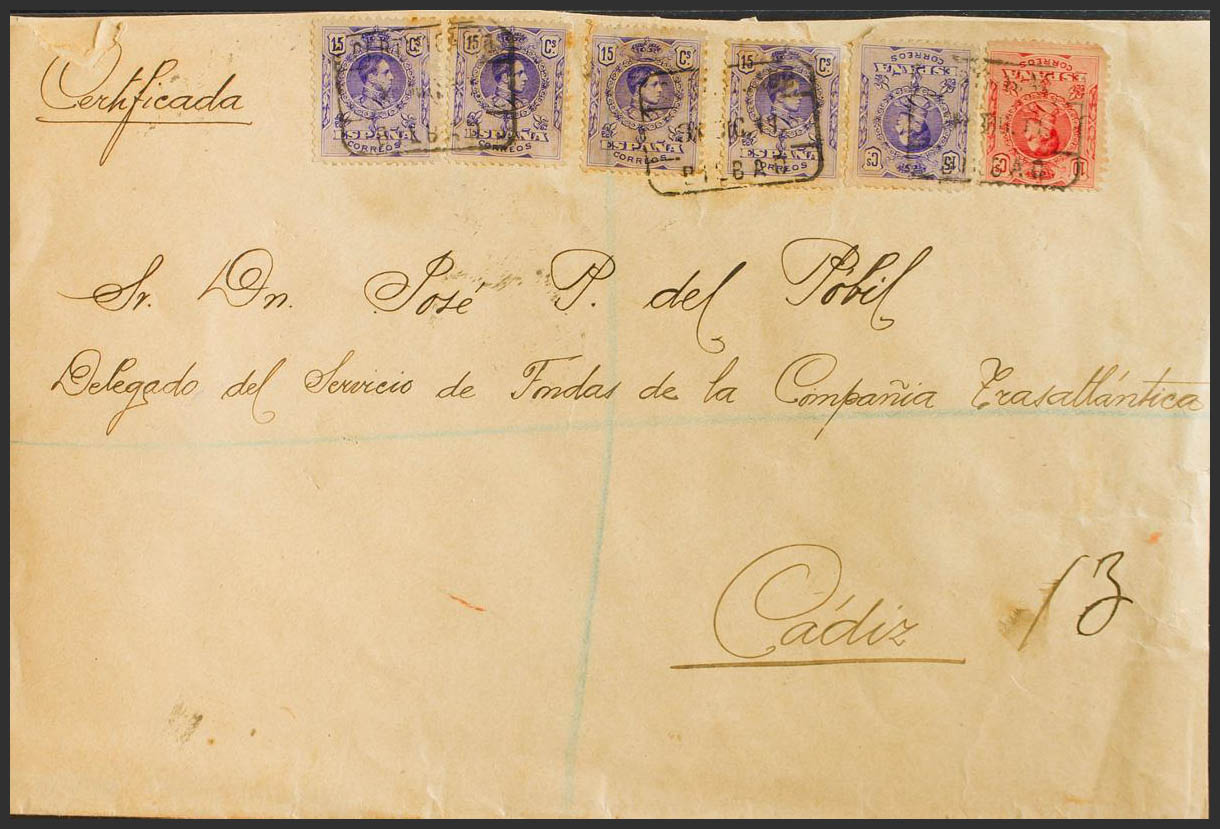 Certificada
15 Cs 15 Cs 15 15 Cs
ESPAÑA ESPAÑA ESPAÑA ESPAÑA ESPAÑA ESPAÑA
CORREOS CORREOS CORREOS CORREOS CORREOS CORREOS
15 Cs 10 Cs
BILBAO
Sr. Dn. José P. del Póbil
Delegado del Servicio de Fondas de la Compañia Trasatlántica
Cádiz
13